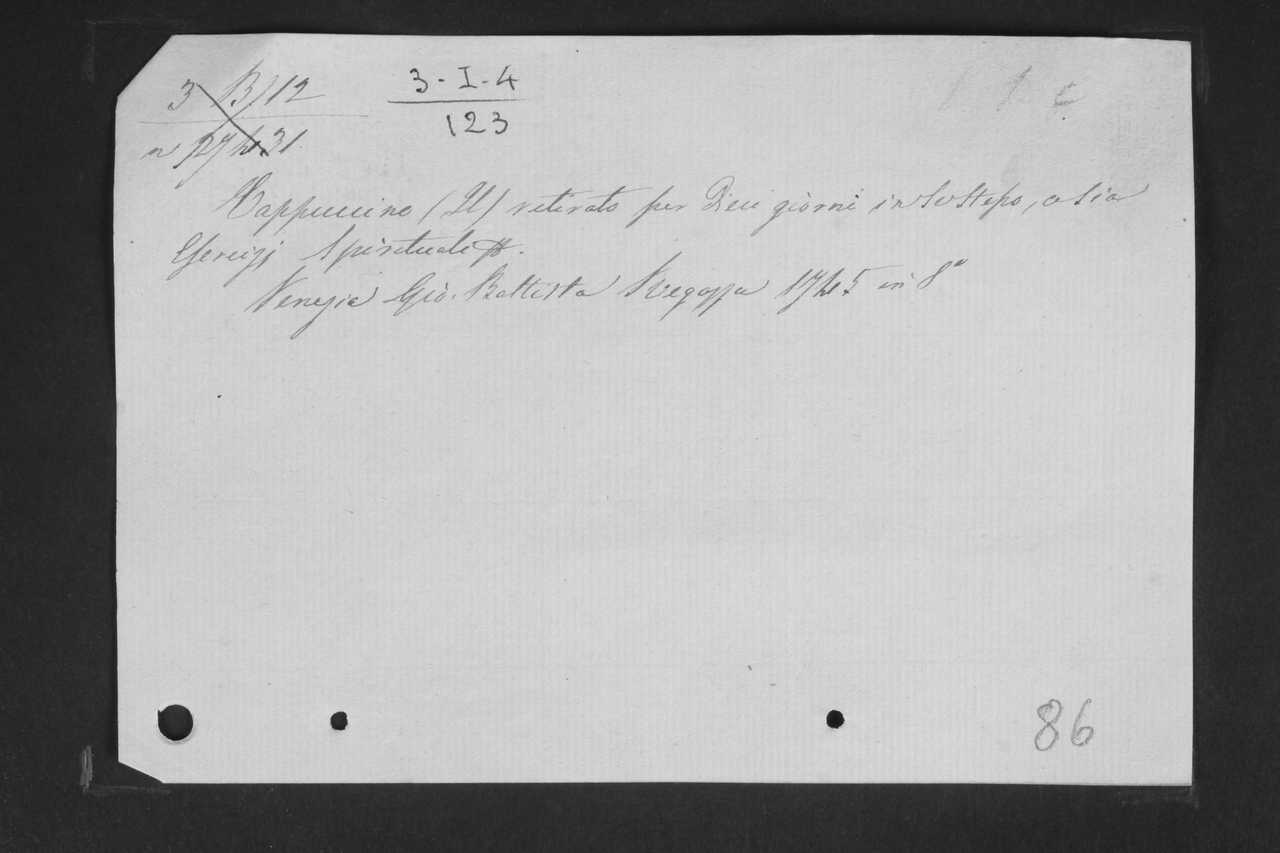 3 B/12 3-I-4
n 27431. 123
Cappuccino (Il) ritirato per Dieci giorni in se stesso, o sia
Esercizj Spirituali.
Venezia Gio. Battista Regozza 1745 in 8°
86